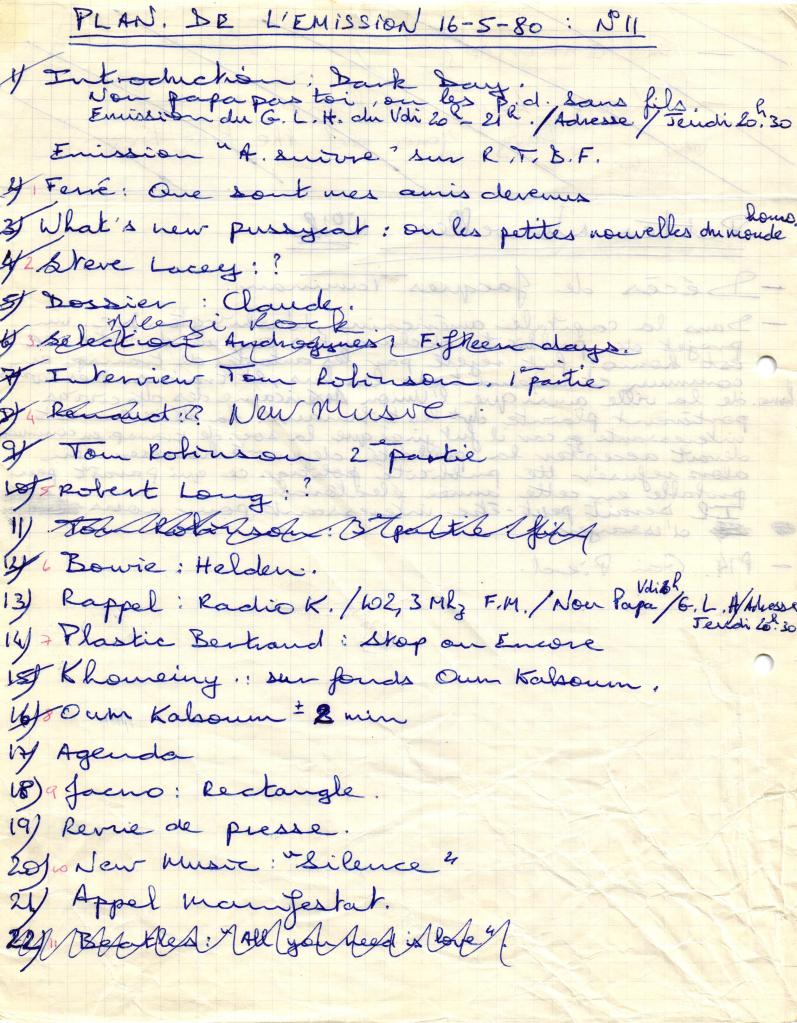 PLAN. DE L'EMISSION 16-5-80 : N° 11
1) Introduction : Dark Day.
Non papa pas toi, ou les p.d. sans fils.
Emission du G. L. H. du Vdi 20h - 21h. / Adresse / Jeudi 20h.30
Emission "A. suivre" sur R.T.B.F.
2) 1 Ferré : Que sont mes amis devenus
3) What's new pussycat : ou les petites nouvelles du monde homo.
4) 2 Steve Lacey : ?
5) Dossier : Claude.
Rock
6) 3 Selection Androgynes : Fifteen days.
7) Interview Tom Robinson. 1e partie
8) 4 Renaud : ? New Musve
9) Tom Robinson 2e partie
10) 5 Robert Long : ?
11) Tom Robinson : 3e partie (fin)
12) 6 Bowie : Helden.
13) Rappel : Radio K. / 102,3 Mhz F.M. / Non Papa / G. L. H / Adresse
Jeudi 20h.30
14) 7 Plastic Bertrand : Stop ou Encore
15) Khomeiny : sur fonds Oum Kalsoum.
16) 8 Oum Kalsoum ± 2 min
17) Agenda
18) 9 Jacno : Rectangle.
19) Revue de presse.
20) 10 New Music : "Silence"
21) Appel manifestat.
22) 11 Beatles : "All you need is love".